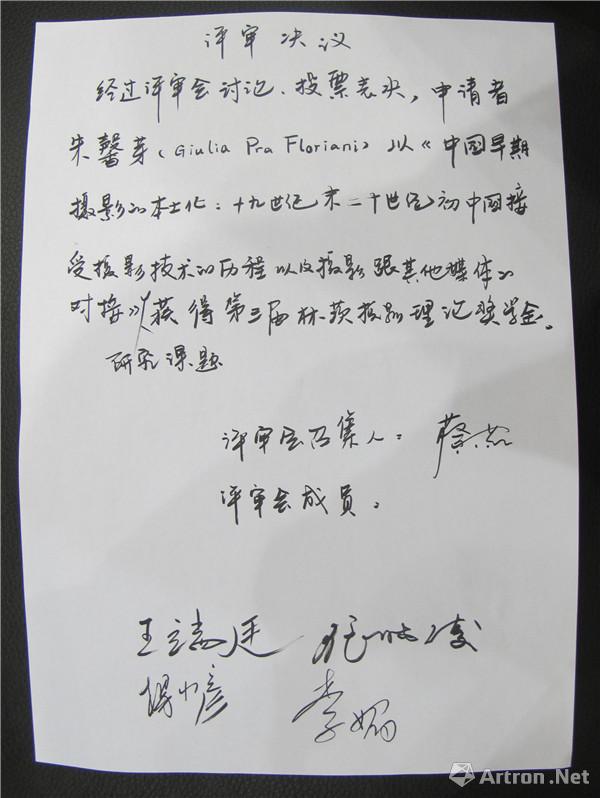 评审决议
经过评审会讨论、投票表决，申请者
朱馨芽（Giulia Pra Floriani）以《中國早期
摄影的本土化：十九世纪末二十世纪初中國接
受摄影技术的历程以及摄影跟其他媒体的
对接》获得第三届摄影理论奖学金。
研究课题
评审会召集人：蔡萌
评审会成员：
王端廷
李媚
Artron.Net